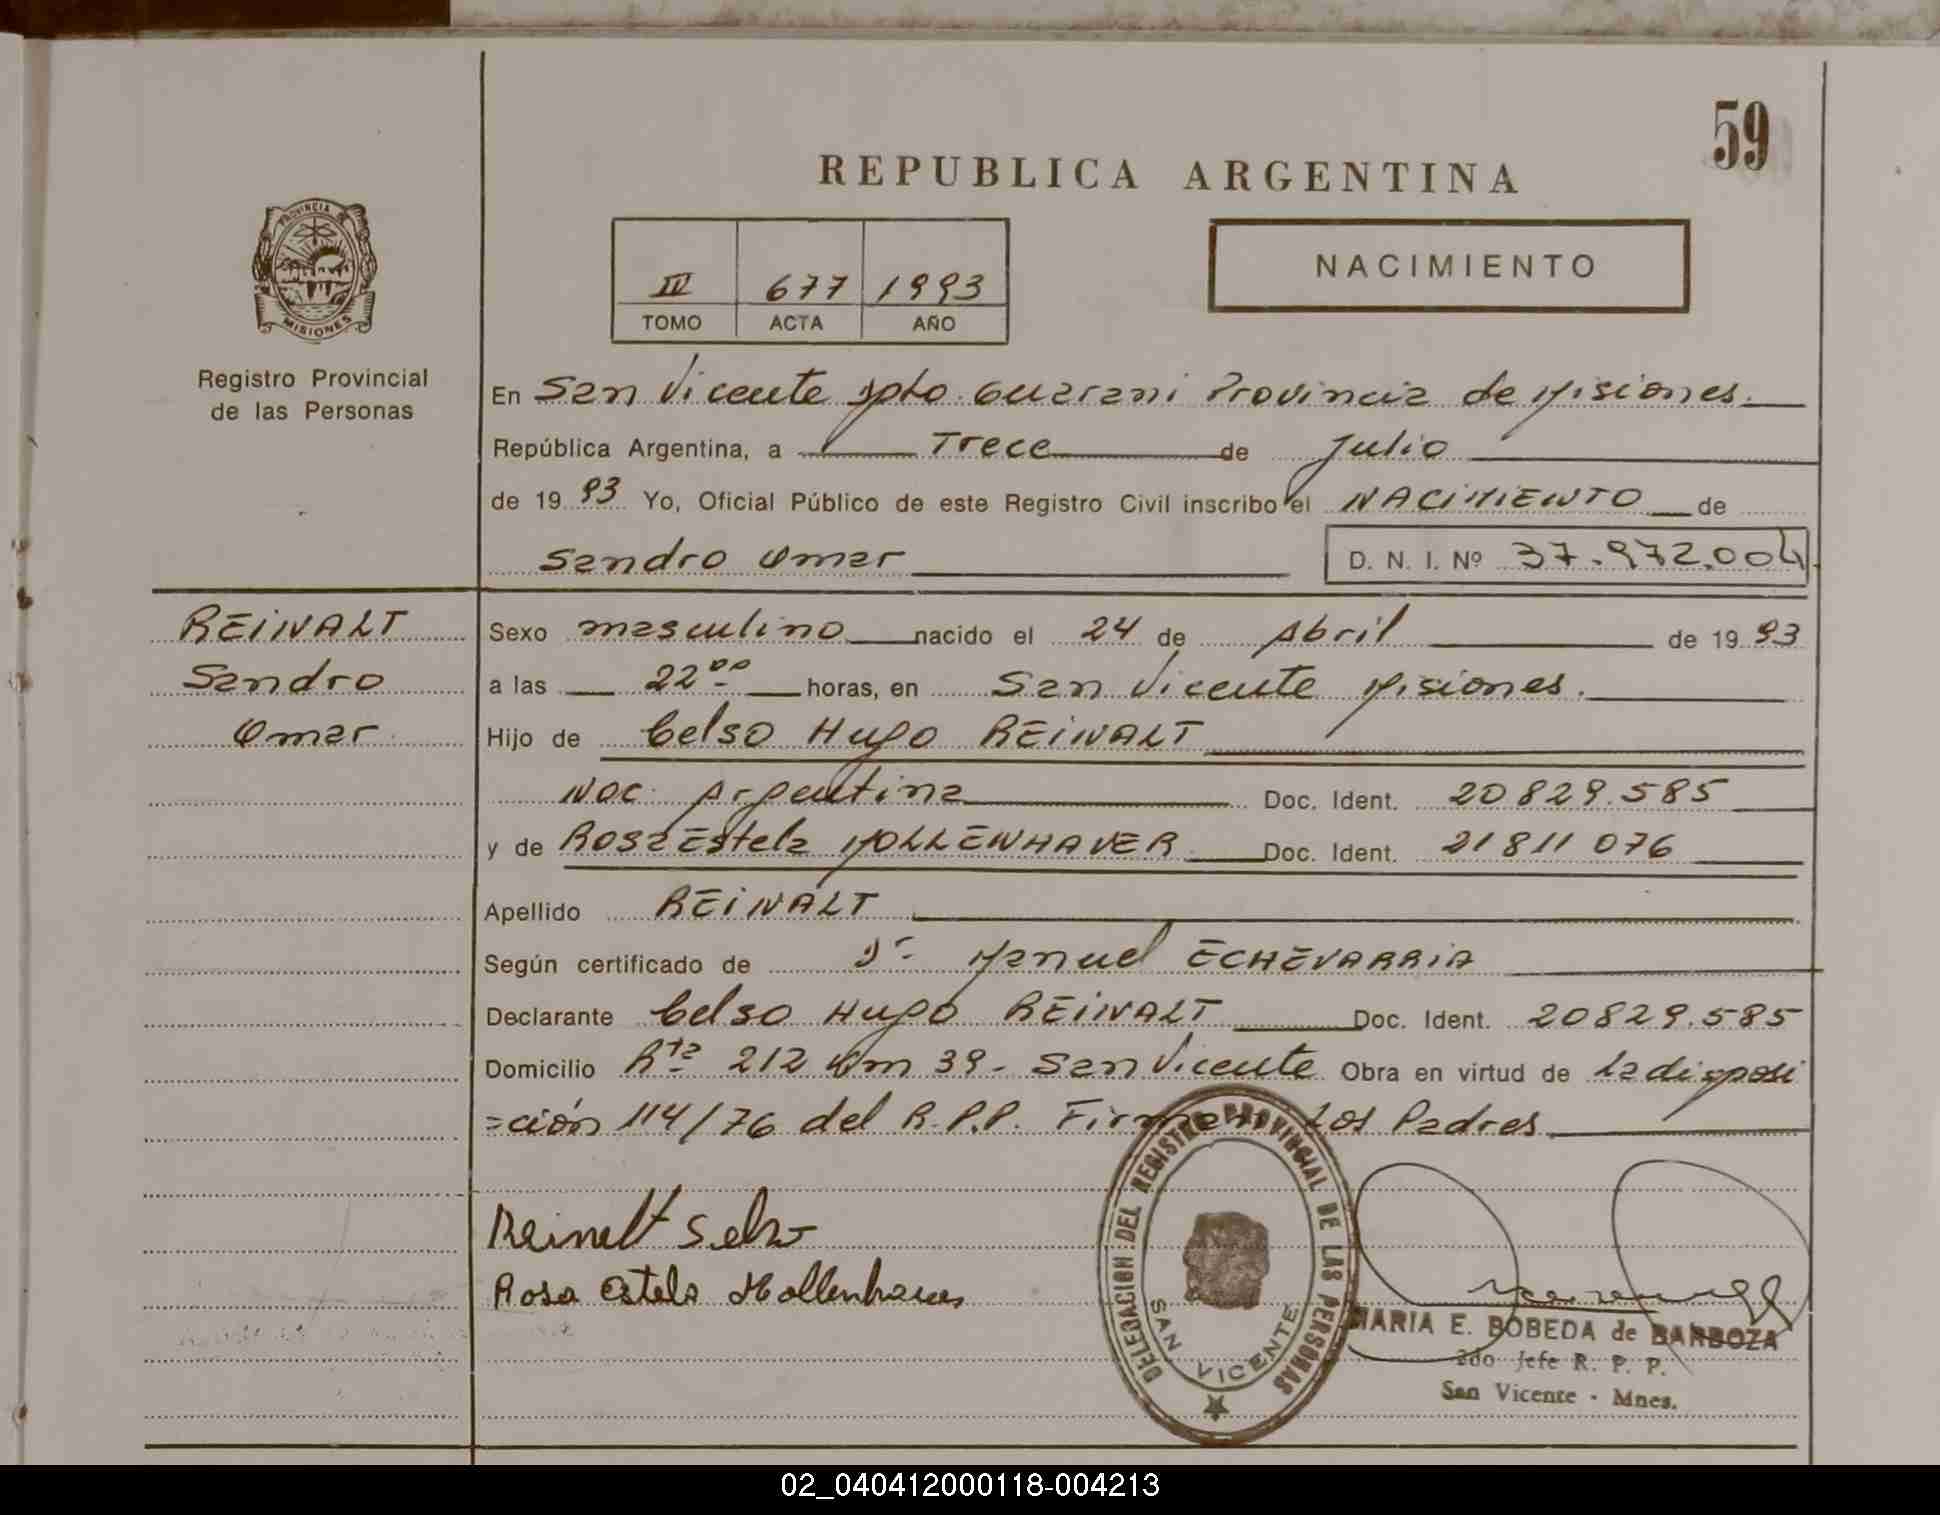 59
REPUBLICA ARGENTINA
PROVINCIA DE
MISIONES
Registro Provincial
de las Personas
NACIMIENTO
677 1993
TOMO ACTA AÑO
En San Vicente Dpto. Guarani Provincia de Misiones.
República Argentina, a Trece de Julio
de 19 93 Yo, Oficial Público de este Registro Civil inscribo el NACIMIENTO de
Sandro Omar D. N. I. Nº 37.972.004
REINALT
Sandro
Omar
Sexo masculino nacido el 24 de Abril de 19 93
a las 22ºº horas, en San Vicente Misiones.
Hijo de Celso Hugo REINALT
Nac. Argentina Doc. Ident. 20829.585
y de Rosa Estela MOLLENHAUER Doc. Ident. 21811076
Apellido REINALT
Según certificado de Dr. Manuel ECHEVARRIA
Declarante Celso Hugo REINALT Doc. Ident. 20829.585
Domicilio Rta 212 Km 39 - San Vicente Obra en virtud de la disposi
=ción 114/76 del R.P.P. Firman Los Padres
Reinalt
Rosa Estela
DELEGACION DEL REGISTRO PROVINCIAL DE LAS PERSONAS
SAN VICENTE
MARIA E. BOBEDA de BARBOZA
2do Jefe R. P. P.
San Vicente - Mnes.
02_040412000118-004213